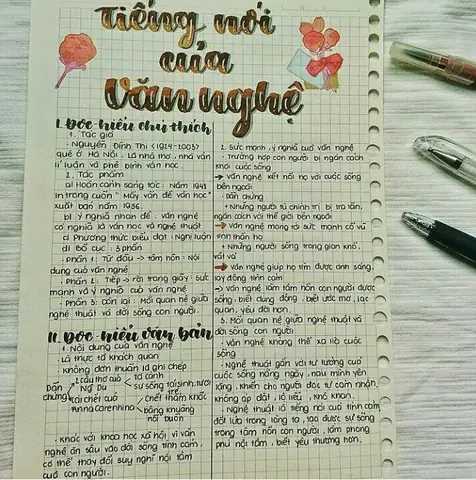 Tiếng nói
của
Văn nghệ
I. Đọc-hiểu chú thích
1. Tác giả
- Nguyễn Đình Thi (1924-2003)
quê ở Hà Nội. Là nhà thơ, nhà văn
lí luận và phê bình văn học
2. Tác phẩm
a) Hoàn cảnh sáng tác: Năm 1948
in trong cuốn "Mấy vấn đề văn học"
xuất bản năm 1956.
b) Ý nghĩa nhan đề: văn nghệ
có nghĩa là văn học và nghệ thuật
c) Phương thức biểu đạt: Nghị luận
d) Bố cục: 3 phần
- Phần 1: Từ đầu → tâm hồn: Nội
dung của văn nghệ
- Phần 2: Tiếp → rời trang giấy: Sức
mạnh và ý nghĩa của văn nghệ
- Phần 3: Còn lại: Mối quan hệ giữa
nghệ thuật và đời sống con người.
II. Đọc-hiểu văn bản
1. Nội dung của văn nghệ
- Là thực tế khách quan
- Không đơn thuần là ghi chép
Dẫn chứng
1 câu thơ của Ng Du
Tả cảnh
Sự sống tái sinh, tươi trẻ
Cái chết của Anna Carennina
Chết thảm khốc
Bâng khuâng nỗi buồn
- Khác với khoa học xã hội vì văn
nghệ ăn sâu vào đời sống tình cảm,
có thể thay đổi suy nghĩ nội tâm
của con người.
2. Sức mạnh, ý nghĩa của văn nghệ
- Trường hợp con người bị ngăn cách
khỏi cuộc sống
→ văn nghệ kết nối họ với cuộc sống
bên ngoài
- Dẫn chứng
+ Những người tù chính trị bị tra tấn,
ngăn cách với thế giới bên ngoài
→ văn nghệ mang tới sức mạnh cổ vũ
tinh thần họ
+ Những người sống trong gian khổ,
vất vả
→ văn nghệ giúp họ tìm được ánh sáng,
lay động tình cảm
→ văn nghệ làm tâm hồn con người được
sống, biết rung động, biết ước mơ, lạc
quan, yêu đời hơn.
3. Mối quan hệ giữa nghệ thuật và
đời sống con người
- văn nghệ không thể xa lìa cuộc
sống
- Nghệ thuật gắn với tư tưởng của
cuộc sống hằng ngày, náu mình yên
lặng, khiến cho người đọc tự cảm nhận,
không áp đặt, lộ liễu, khô khan.
- Nghệ thuật là tiếng nói của tình cảm,
đốt lửa trong lòng ta, tạo được sự sống
trong tâm hồn con người, làm phong
phú nội tâm, biết yêu thương hơn.